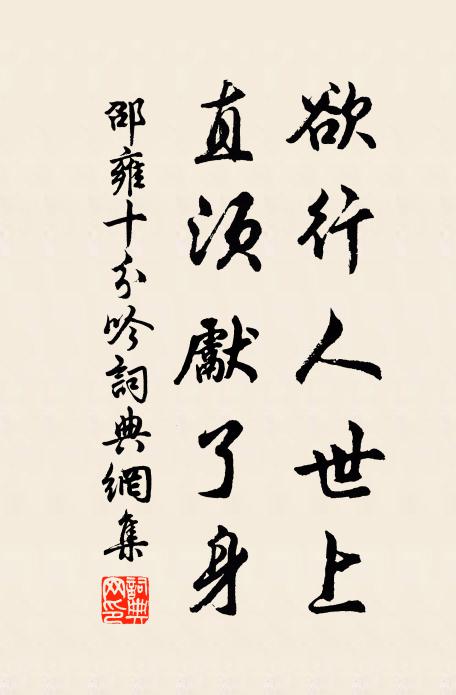 欲行人世上
直須獻了身
邵雍十分吟詞典網集
詞典網印